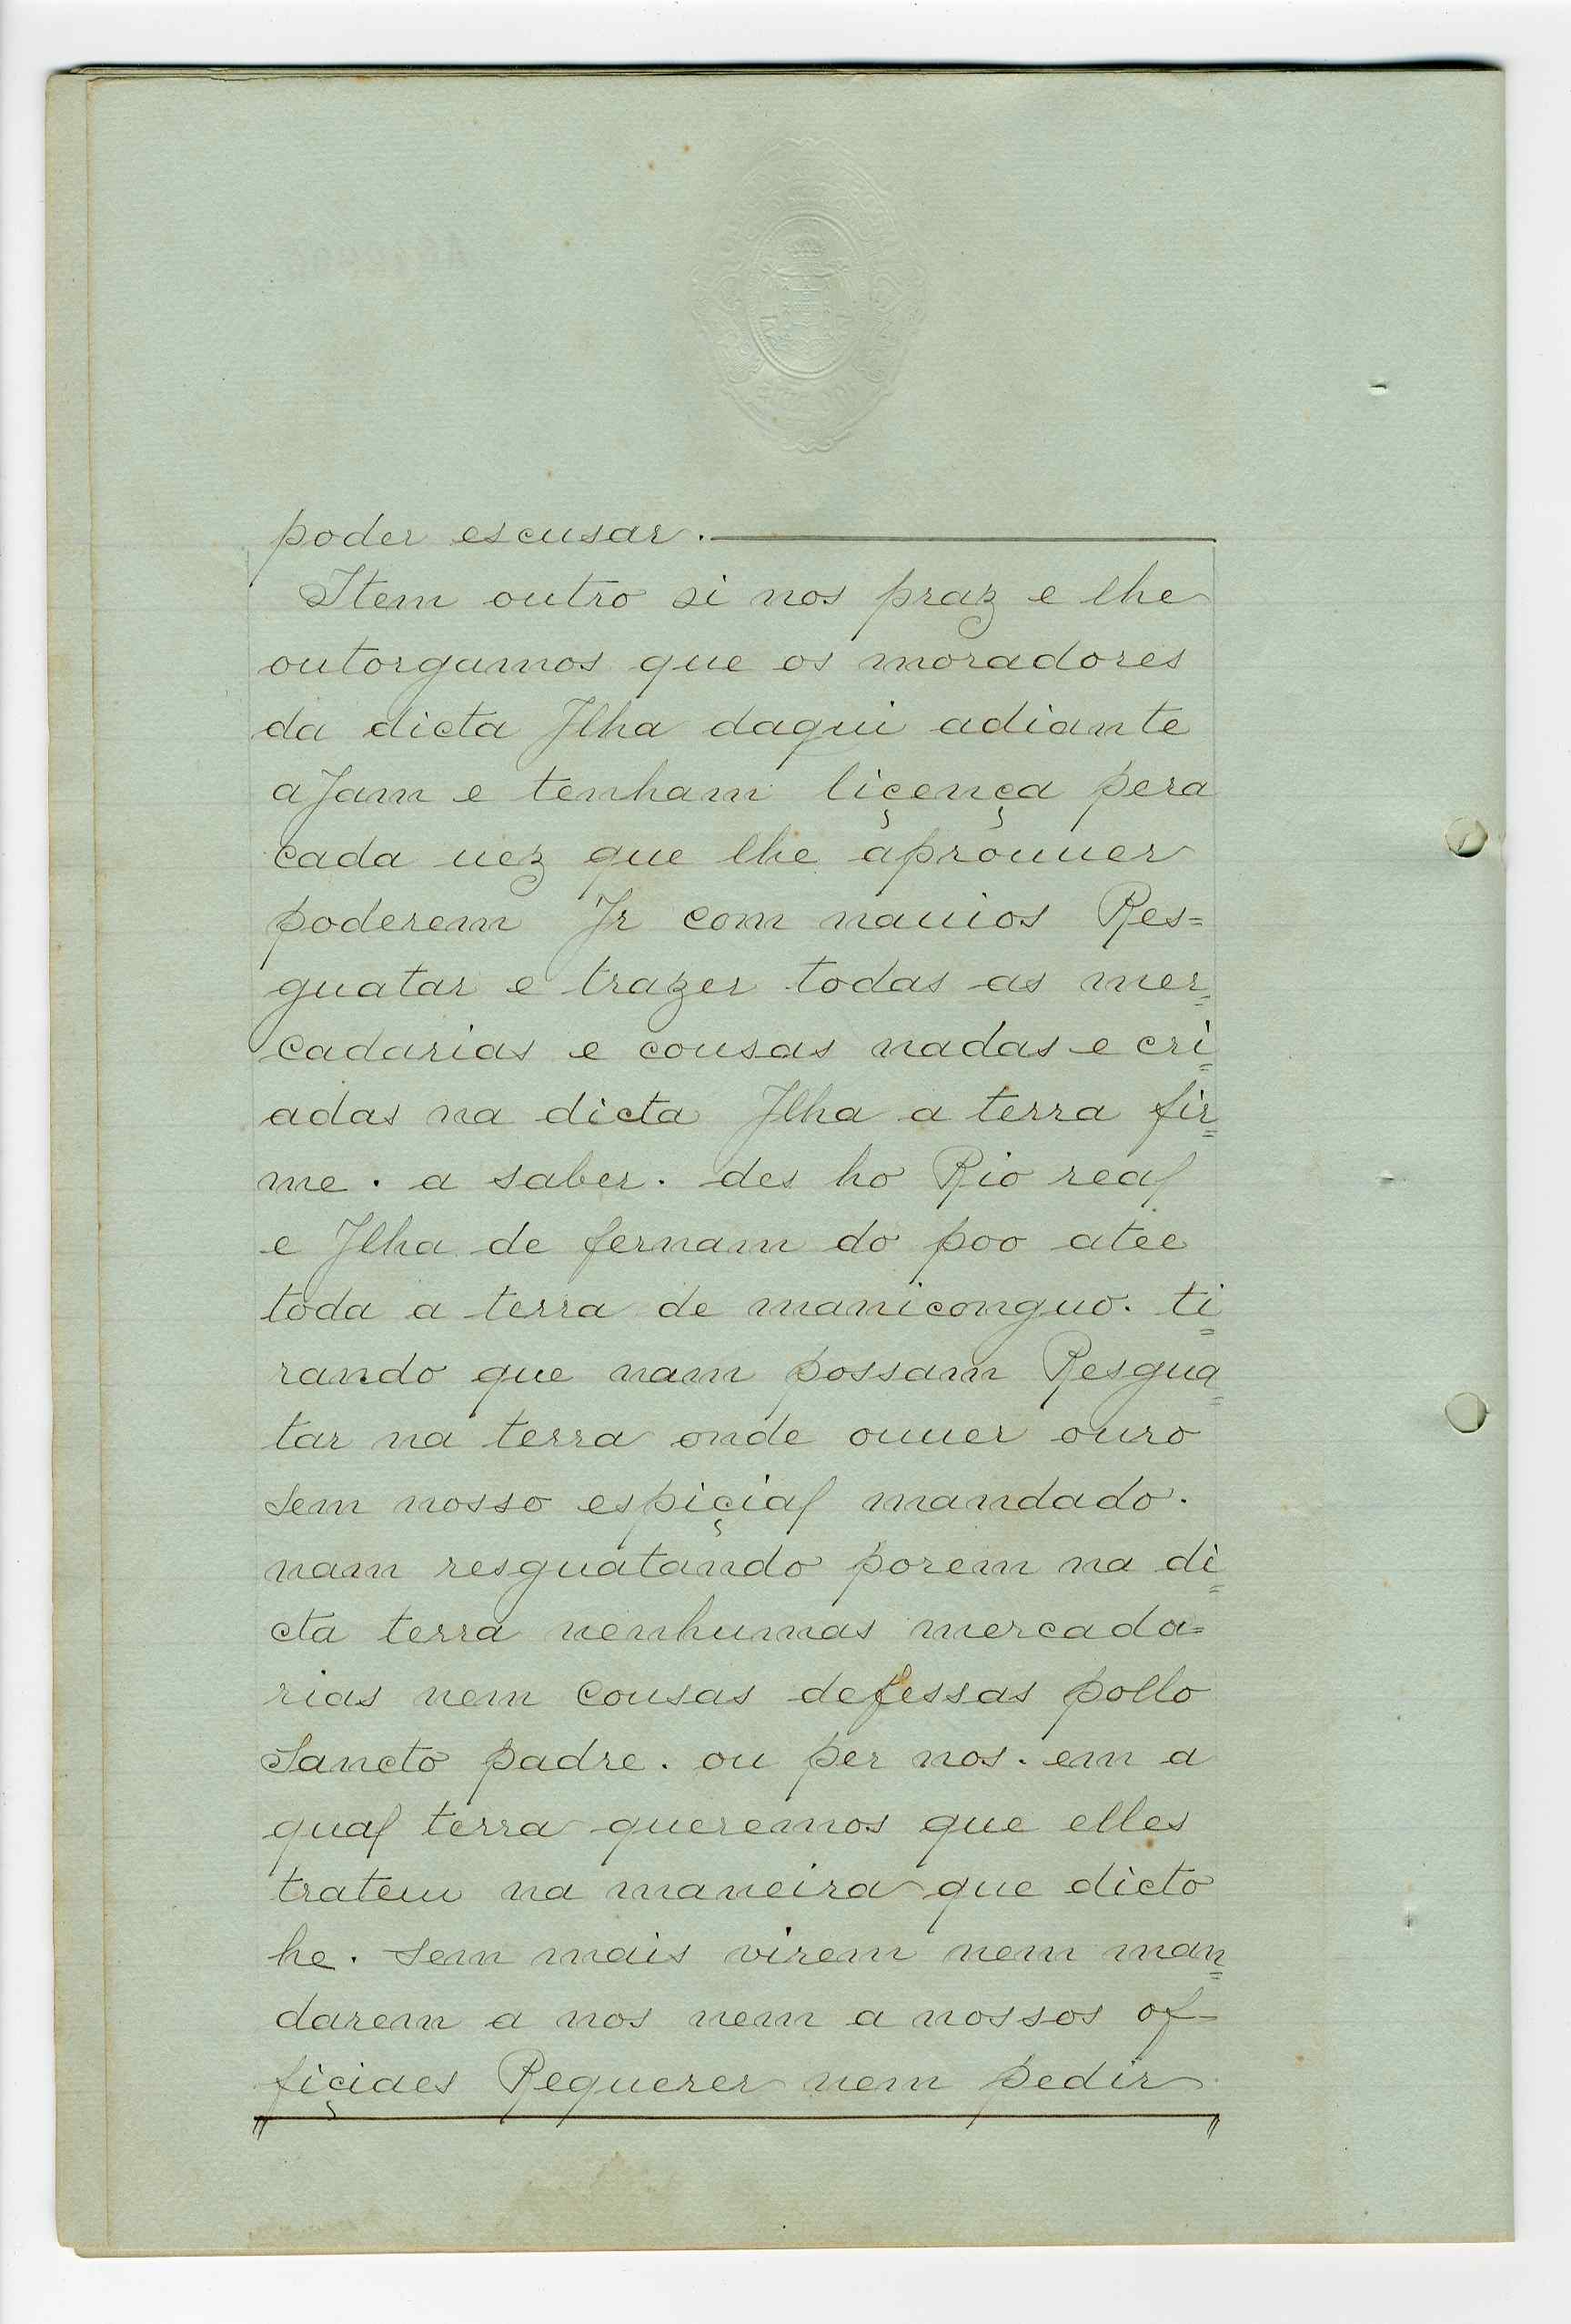 poder escusar.
Item outro si nos praz e lhe
outorgamos que os moradores
da dicta Jlha daqui adiante
aJam e tenham liçença pera
cada uez que lhe aprouuer
poderem Jr com nauios Res=
guatar e trazer todas as mer=
cadarias e cousas nadas e cri=
adas na dicta Jlha a terra fir=
me. a saber. des ho Rio real
e Jlha de fernam do poo atee
toda a terra de maniconguo. ti=
rando que nam possam Resgua=
tar na terra onde ouuer ouro
sem nosso espiçial mandado.
nam resguatando porem na di=
cta terra nenhumas mercada=
rias nem cousas defessas pollo
Sancto padre. ou per nos. em a
qual terra queremos que elles
tratem na maneira que dicto
he. sem mais virem nem man=
darem a nos nem a nossos of-
fiçiaes Requerer nem pedir